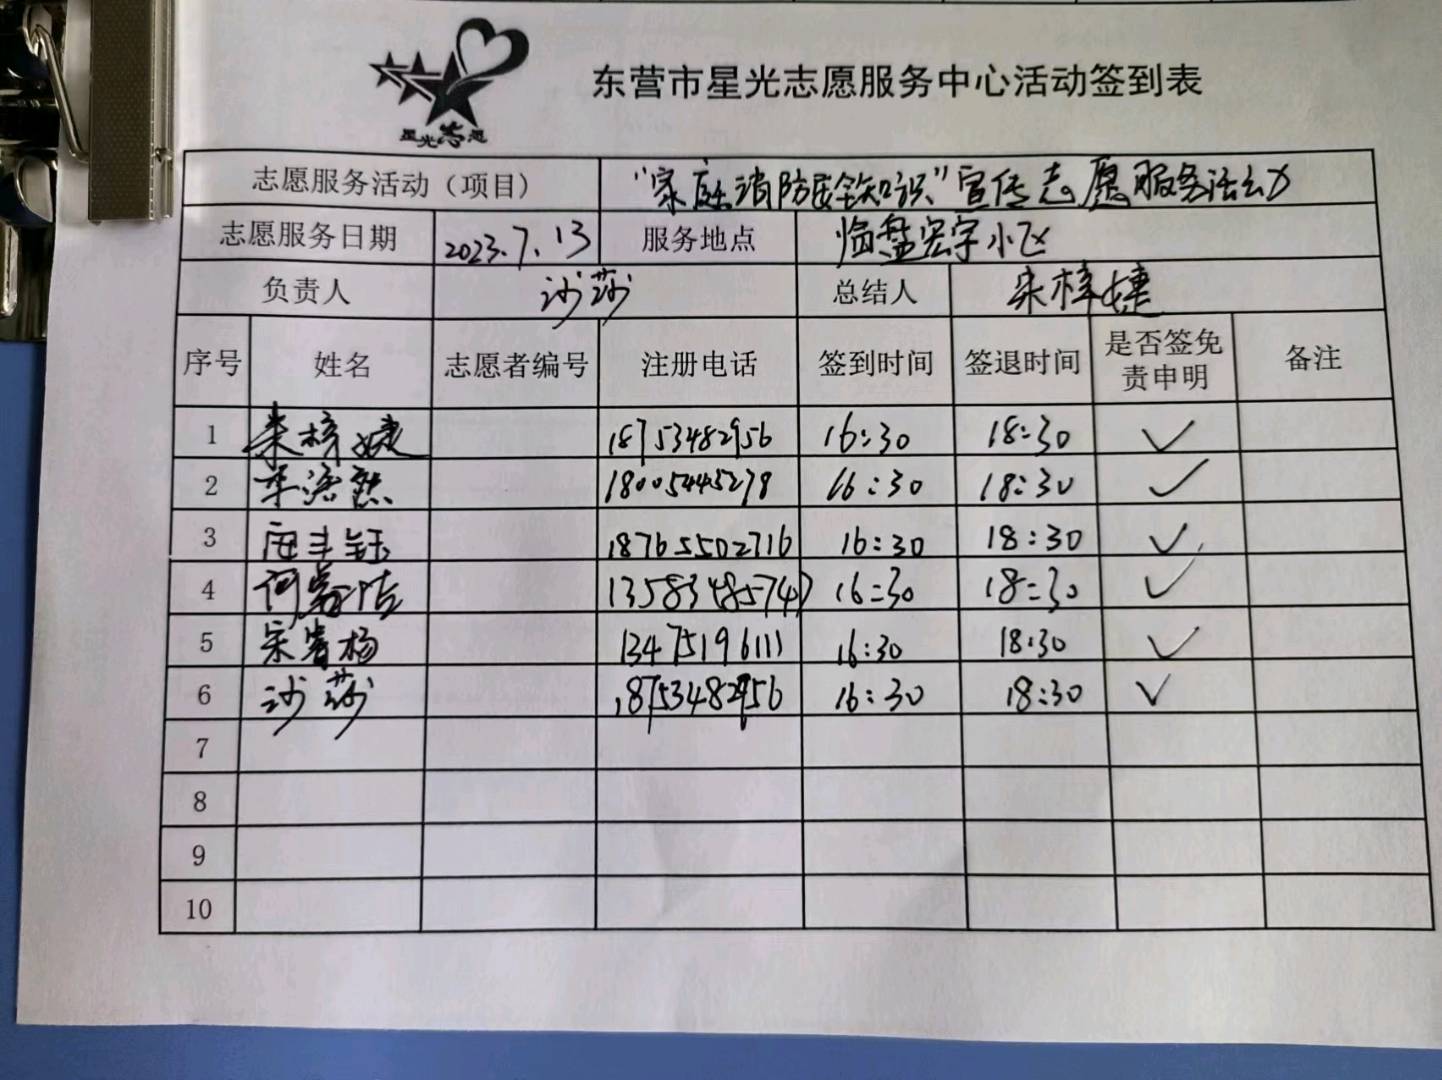 星光志愿
东营市星光志愿服务中心活动签到表
志愿服务活动（项目） “家庭消防安全知识”宣传志愿服务活动
志愿服务日期 2023.7.13 服务地点 临盘宏宇小区
负责人 沙莎 总结人 朱梓婕
序号 姓名 志愿者编号 注册电话 签到时间 签退时间 是否签免责申明 备注
1 朱梓婕 18753482956 16:30 18:30 ✓
2 18005445278 16:30 18:30 ✓
3 18765502716 16:30 18:30 ✓
4 13583485747 16:30 18:30 ✓
5 13475196111 16:30 18:30 ✓
6 沙莎 18753482956 16:30 18:30 ✓
7
8
9
10